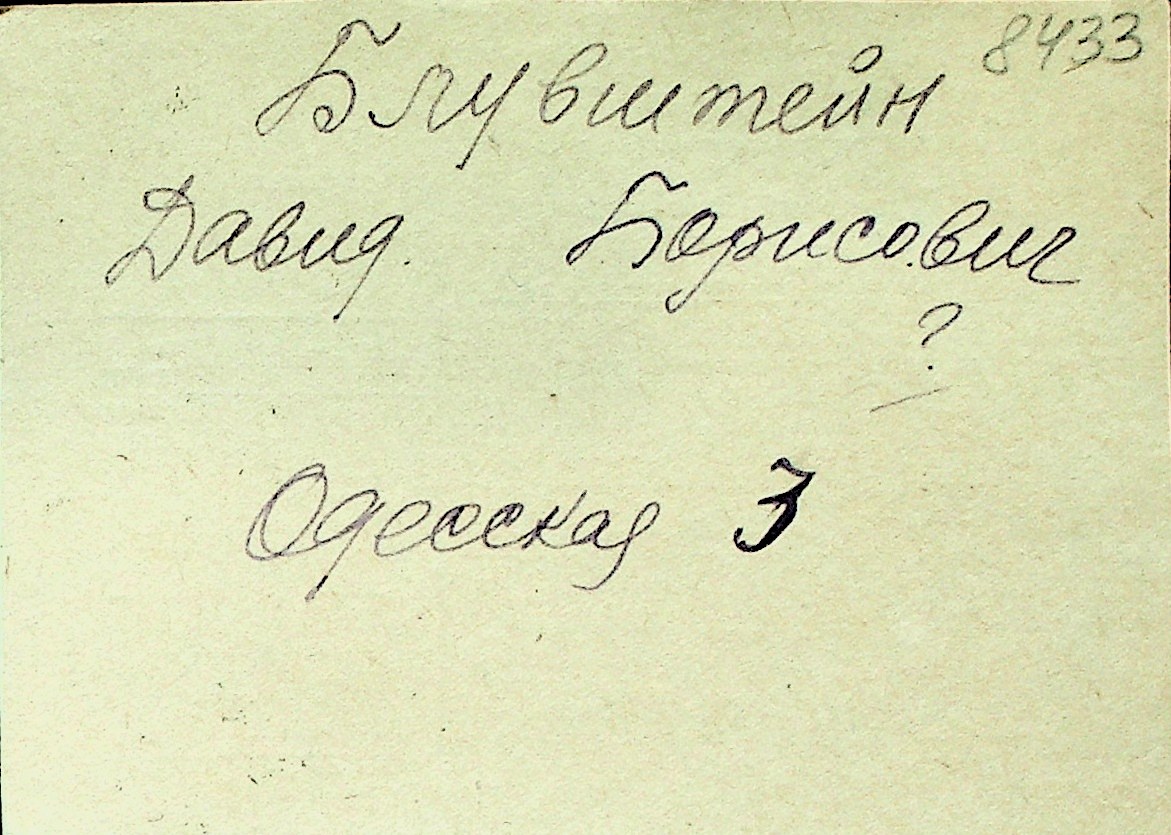 8433
Блувштейн
Давид. Борисович
?
Одесская 3